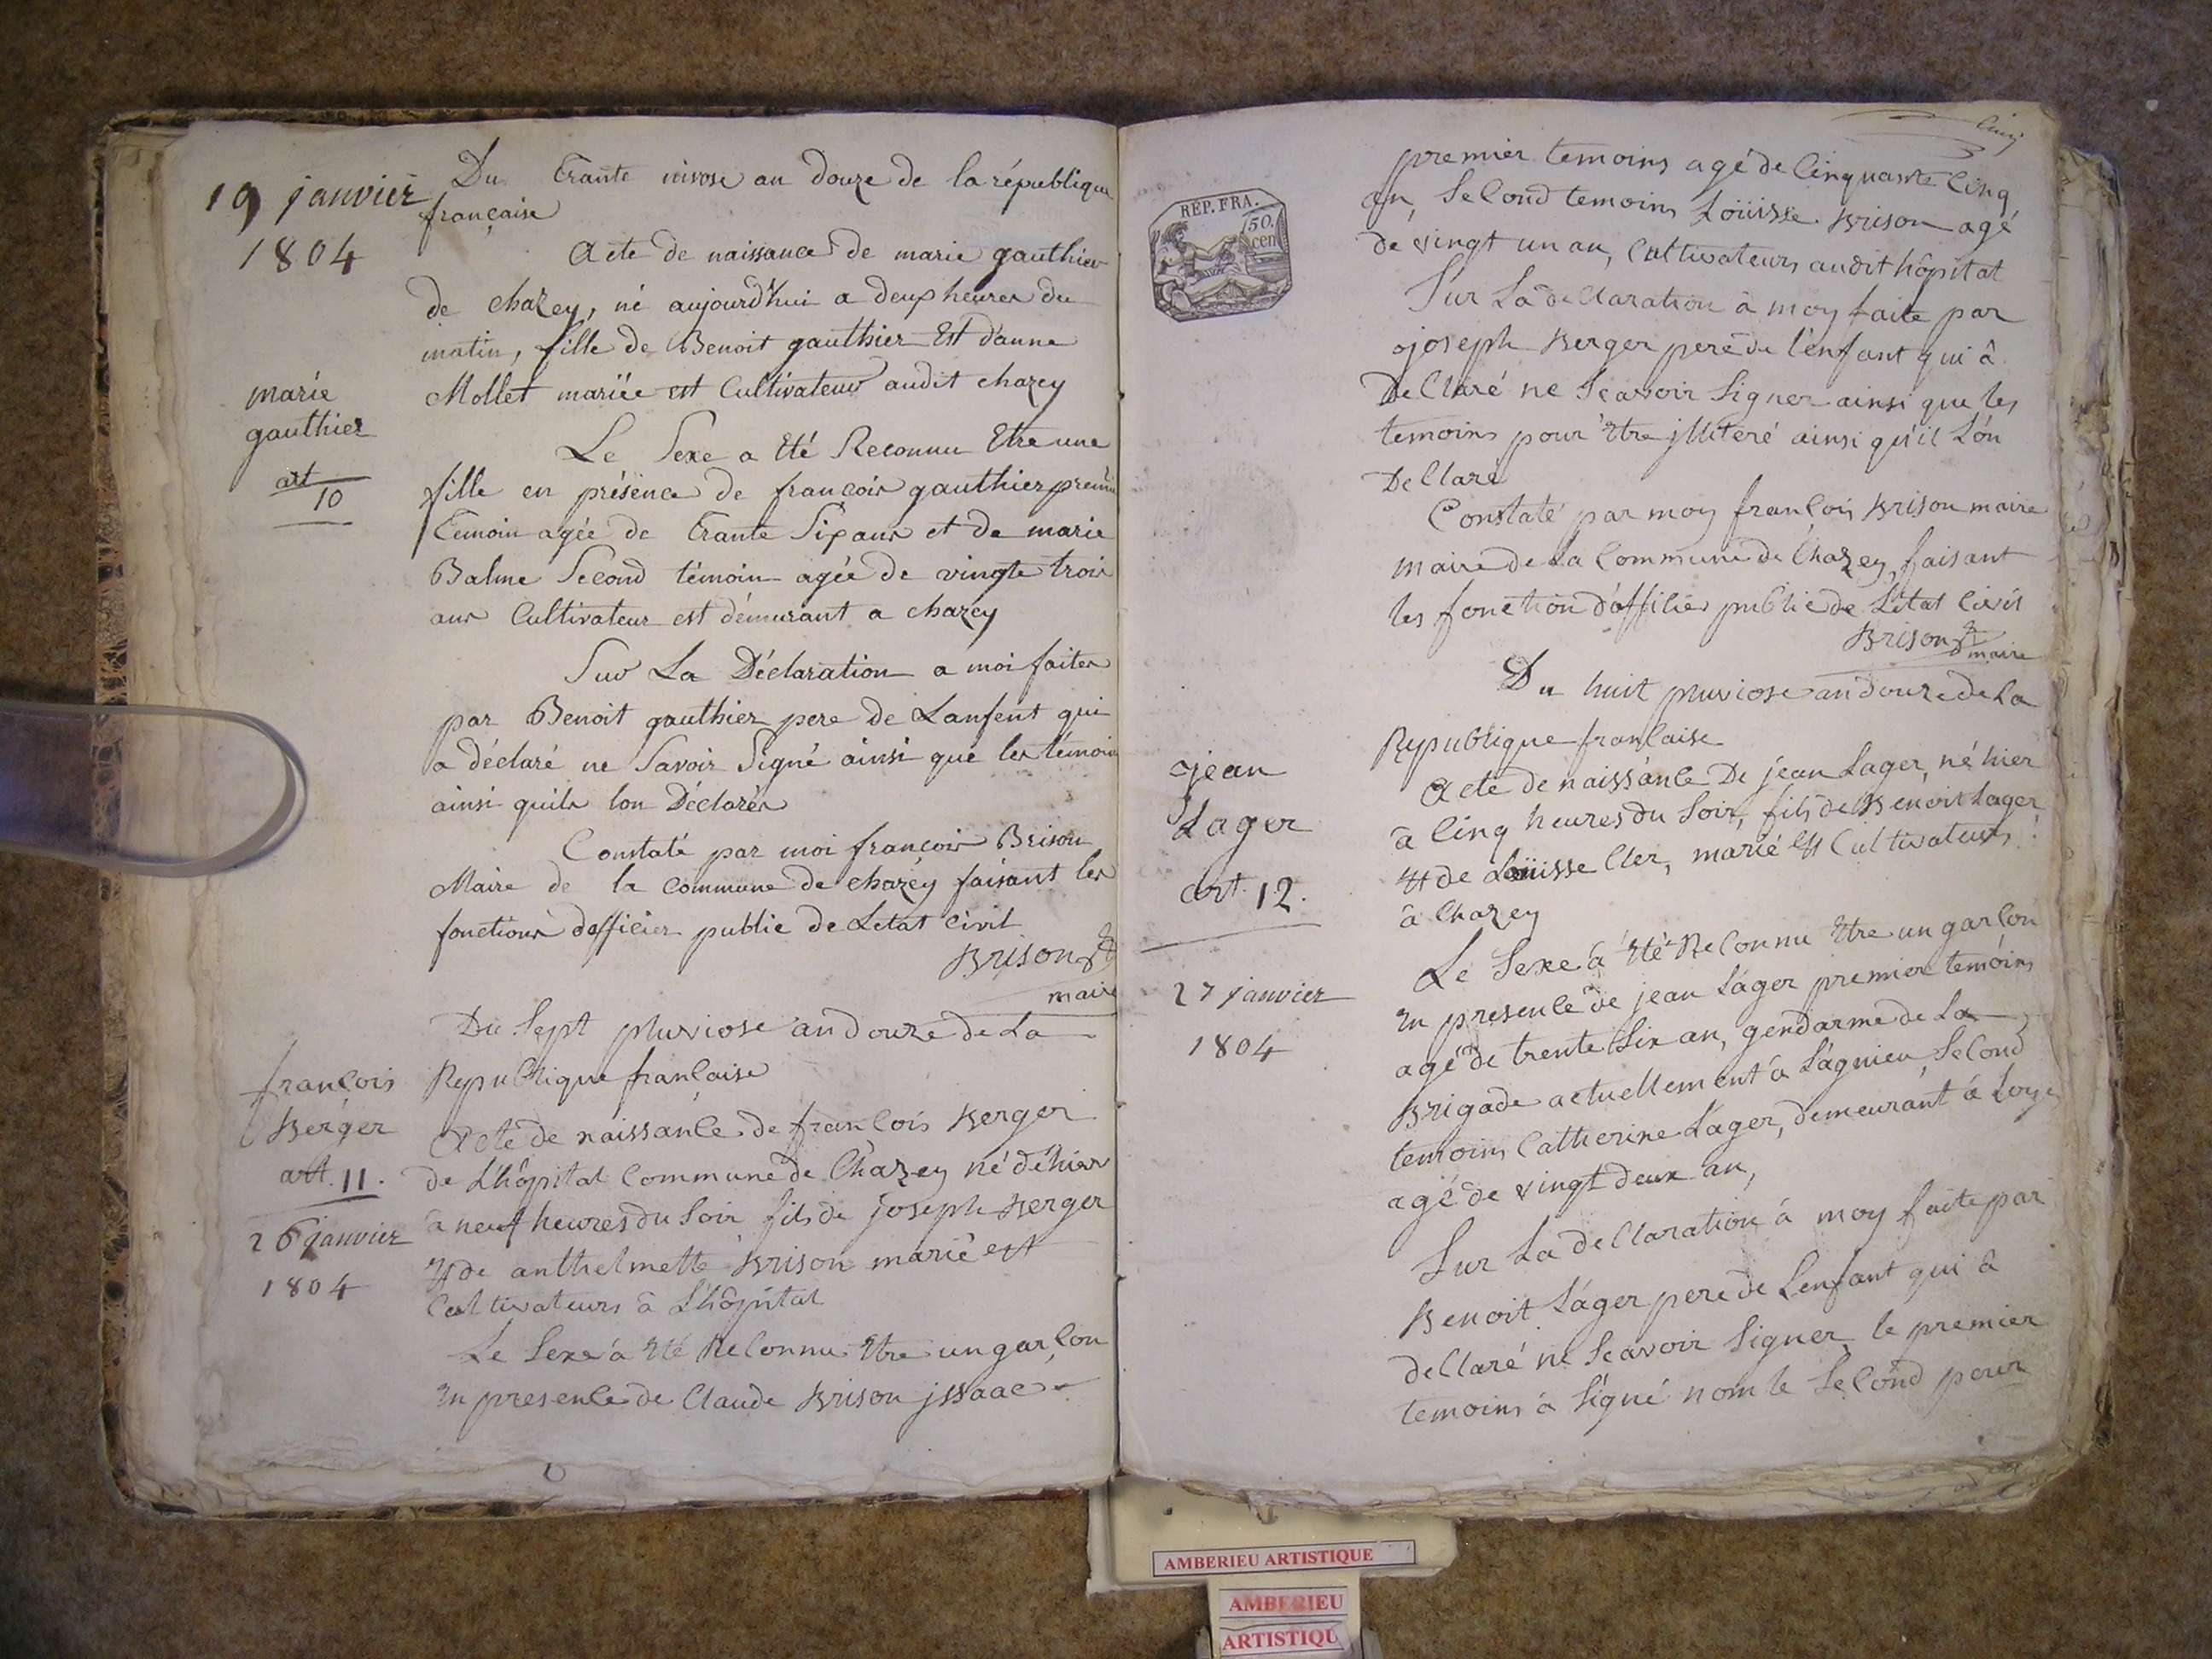 19 janvier
1804
marie
gauthier
art
10
Du Trante nivose an douze de la république
française
Acte de naissance de marie gauthier
de chazey, né aujourd'hui a deux heures du
matin, fille de Benoit gauthier Est d'anne
Mollet mariée est Cultivateur audit chazey
Le Sexe a Eté Reconnu Etre une
fille en présence de francois gauthier premier
Temoin agée de Trante Six ans et de marie
Balme Second témoin agée de vingte trois
ans Cultivateur est démurant a chazey
Sur La Déclaration a moi faites
par Benoit gauthier pere de Lanfent qui
a déclaré ne Savoir Signé ainsi que les témoin
ainsi quils lon Déclarés
Constaté par moi francois Brison
Maire de la Commune de chazey faisant les
fonctions dofficier public de Letat Civil
Brison
maire
françois
Berger
art. 11.
26 janvier
1804
Du Sept pluviose an douze de La
Republique française
Acte de naissance de françois Berger
de L'hôpital Commune de Chazey né d'éhier
à neuf heures du Soir fils de joseph Berger
Et de anthelmette Brison marié est
Cultivateurs à L'hôpital
Le Sexe à Eté Reconnu Etre un garçon
En presence de Claude Brison jssaac
REP. FRA.
50.
cen
premier temoins agé de Cinquante Cinq
an, Second temoins Loüisse Brison agé
de vingt un an, Cultivateurs audit hôpital
Sur La declaration à moy faite par
joseph Berger pere de l'enfant qui â
Declaré ne Scavoir Signer ainsi que les
temoins pour Etre jlliteré ainsi qu'il L'on
Declaré
Constaté par moy françois Brison maire
maire de La Commune de Chazey, faisant
les fonction d'officier public de L'état Civil
Brison
maire
jean
Lager
art. 12.
27 janvier
1804
Du huit pluviose an douze de La
Republique française
Acte de naissance De jean Lager, né hier
à Cinq heures du Soir, fils de Benoit Lager
Et de Loüisse Cler, marié Est Cultivateurs
à Chazey
Le Sexe à Eté Reconnu Etre un garçon
En presence de jean Lager premier temoins
agé de trente Six an, gendarme de La
Brigade actuellement à Lagnieu, Second
temoins Catherine Lager, demeurant à Loye
agé de vingt deux an,
Sur La declaration à moy faite par
Benoit Lager pere de L'enfant qui â
declaré ne Scavoir Signer, le premier
temoins à Signé nom le Second pour
AMBERIEU ARTISTIQUE
AMBERIEU
ARTISTIQU